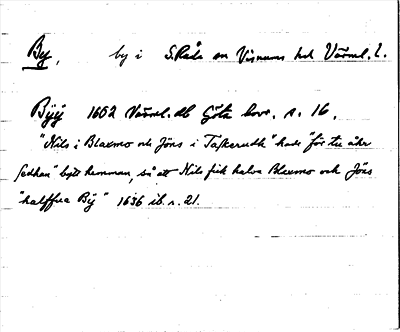 By, by i S. Råda sn Visnums hd Värml. l.
Byÿ 1602 Värml. db Göta hovr. s. 16.
"Nils i Blaxmo och Jöns i Taskerudh" hade "för tu åhr
sedhan" bytt hemman, så att Nils fick halva Blaxmo och Jöns
"halffua Bÿ" 1636 ib. s. 21.